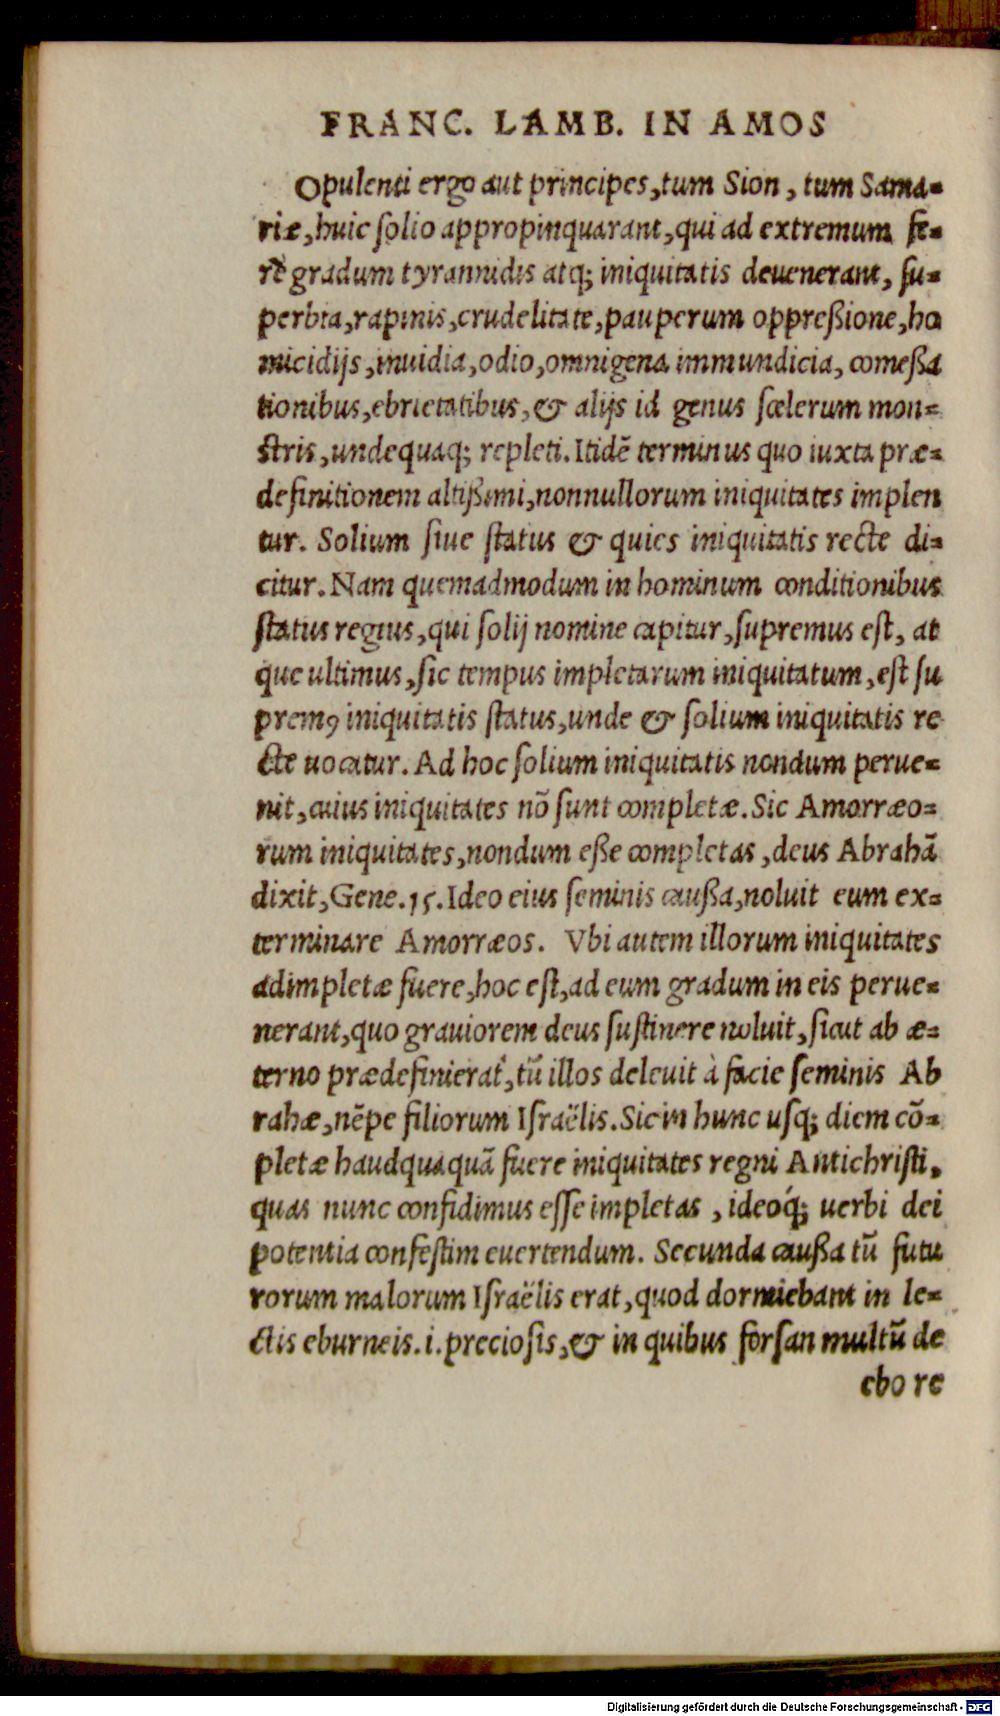 FRANC. LAMB. IN AMOS
Opulenti ergo aut principes, tum Sion, tum Sama-
riæ, huic ſolio appropinquarant, qui ad extremum fe-
rè gradum tyrannidis atq; iniquitatis deuenerant, ſu-
perbia, rapinis, crudelitate, pauperum oppreßione, ho
micidijs, inuidia, odio, omnigena immundicia, comeßa
tionibus, ebrietatibus, & alijs id genus ſcelerum mon-
ſtris, undequaq; repleti. Itidē terminus quo iuxta præ-
definitionem altißimi, nonnullorum iniquitates implen
tur. Solium ſiue ſtatus & quies iniquitatis recte di-
citur. Nam quemadmodum in hominum conditionibus
ſtatus regius, qui ſolij nomine capitur, ſupremus eſt, at
que ultimus, ſic tempus impletarum iniquitatum, eſt ſu
premꝰ iniquitatis ſtatus, unde & ſolium iniquitatis re
cte uocatur. Ad hoc ſolium iniquitatis nondum perue-
nit, cuius iniquitates nō ſunt completæ. Sic Amorræo-
rum iniquitates, nondum eße completas, deus Abrahā
dixit, Gene. 15. Ideo eius ſeminis caußa, noluit eum ex-
terminare Amorræos. Vbi autem illorum iniquitates
adimpletæ fuere, hoc eſt, ad eum gradum in eis perue-
nerant, quo grauiorem deus ſuſtinere noluit, ſicut ab æ-
terno prædefinierat, tū illos deleuit à facie ſeminis Ab
rahæ, nēpe filiorum Iſraëlis. Sic in hunc uſq; diem cō-
pletæ haudquaquā fuere iniquitates regni Antichriſti,
quas nunc confidimus eſſe impletas, ideoq́; uerbi dei
potentia confeſtim euertendum. Secunda caußa tū futu
rorum malorum Iſraëlis erat, quod dormiebant in le-
ctis eburneis. i. precioſis, & in quibus forſan multū de
ebo re
Digitalisierung gefördert durch die Deutsche Forschungsgemeinschaft - DFG